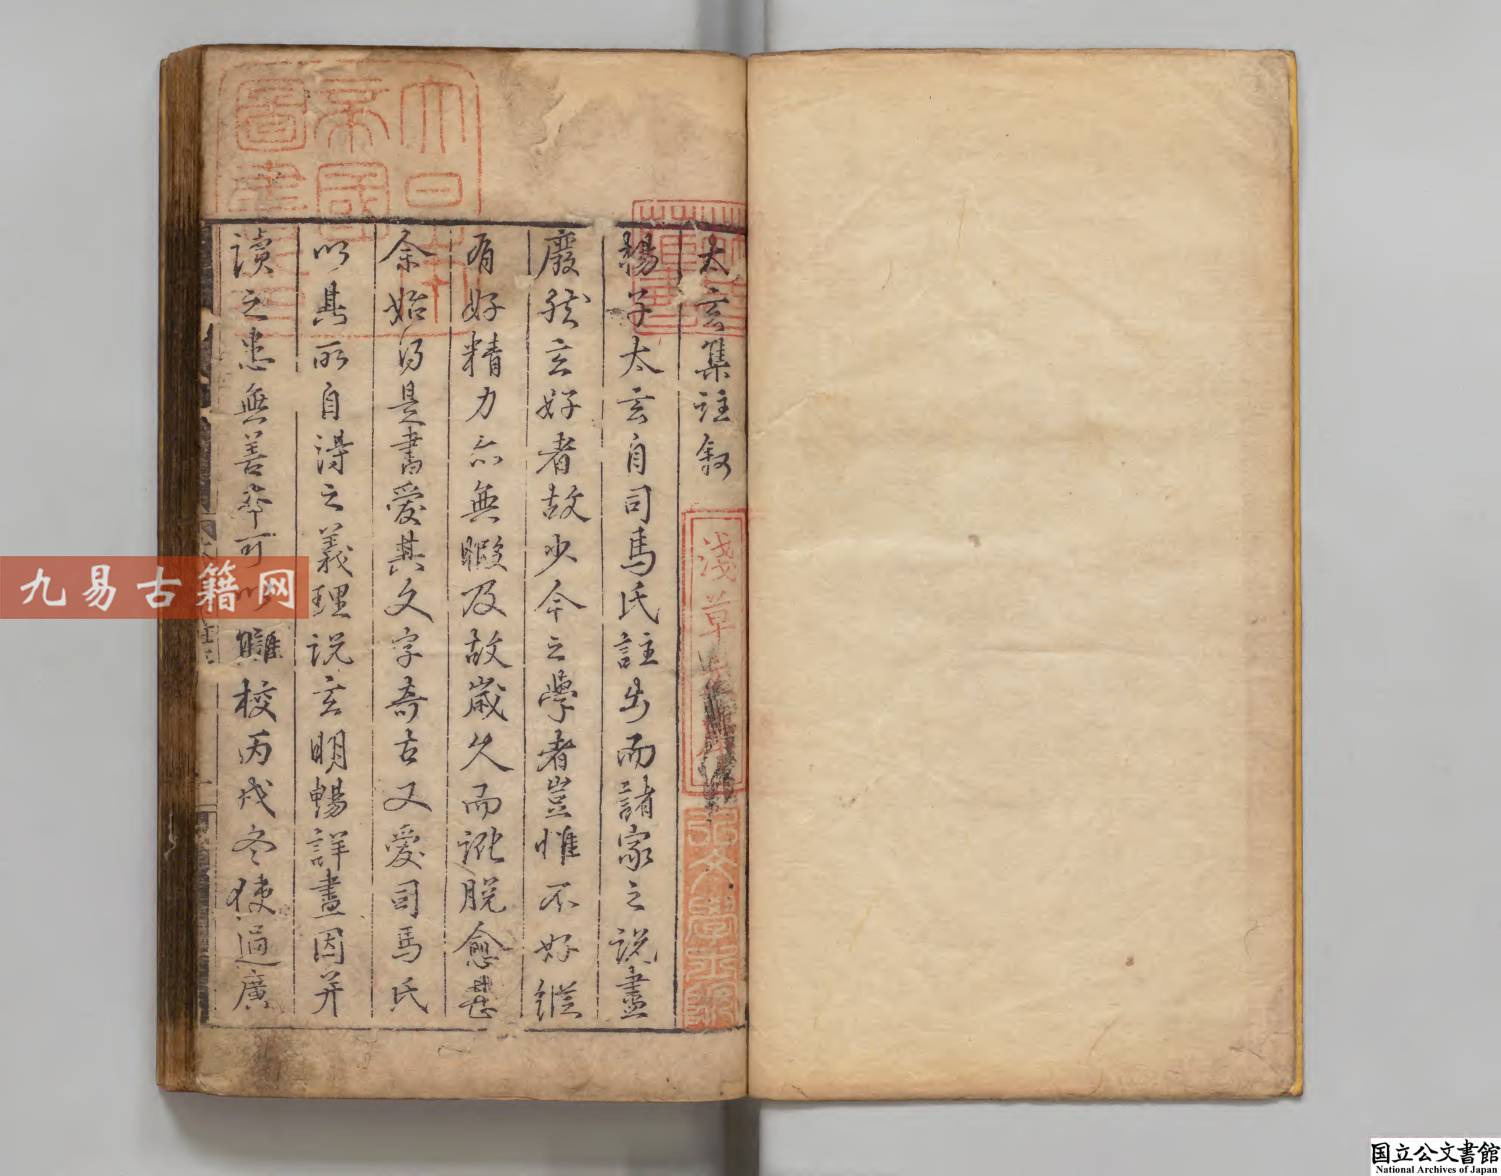 太玄集註叙
楊子太玄自司馬氏註出而諸家之說盡
廢然玄好者故少今之學者豈惟不好縱
有好精力亦無暇及故歲久而訛脫愈甚
余始得是書愛其文字奇古又愛司馬氏
以其所自得之義理說玄明暢詳盡因并
讀之患無善本可以讎校丙戌冬使過廣
淺草文庫
大日本帝國圖書印
九易古籍网
国立公文書館
National Archives of Japan